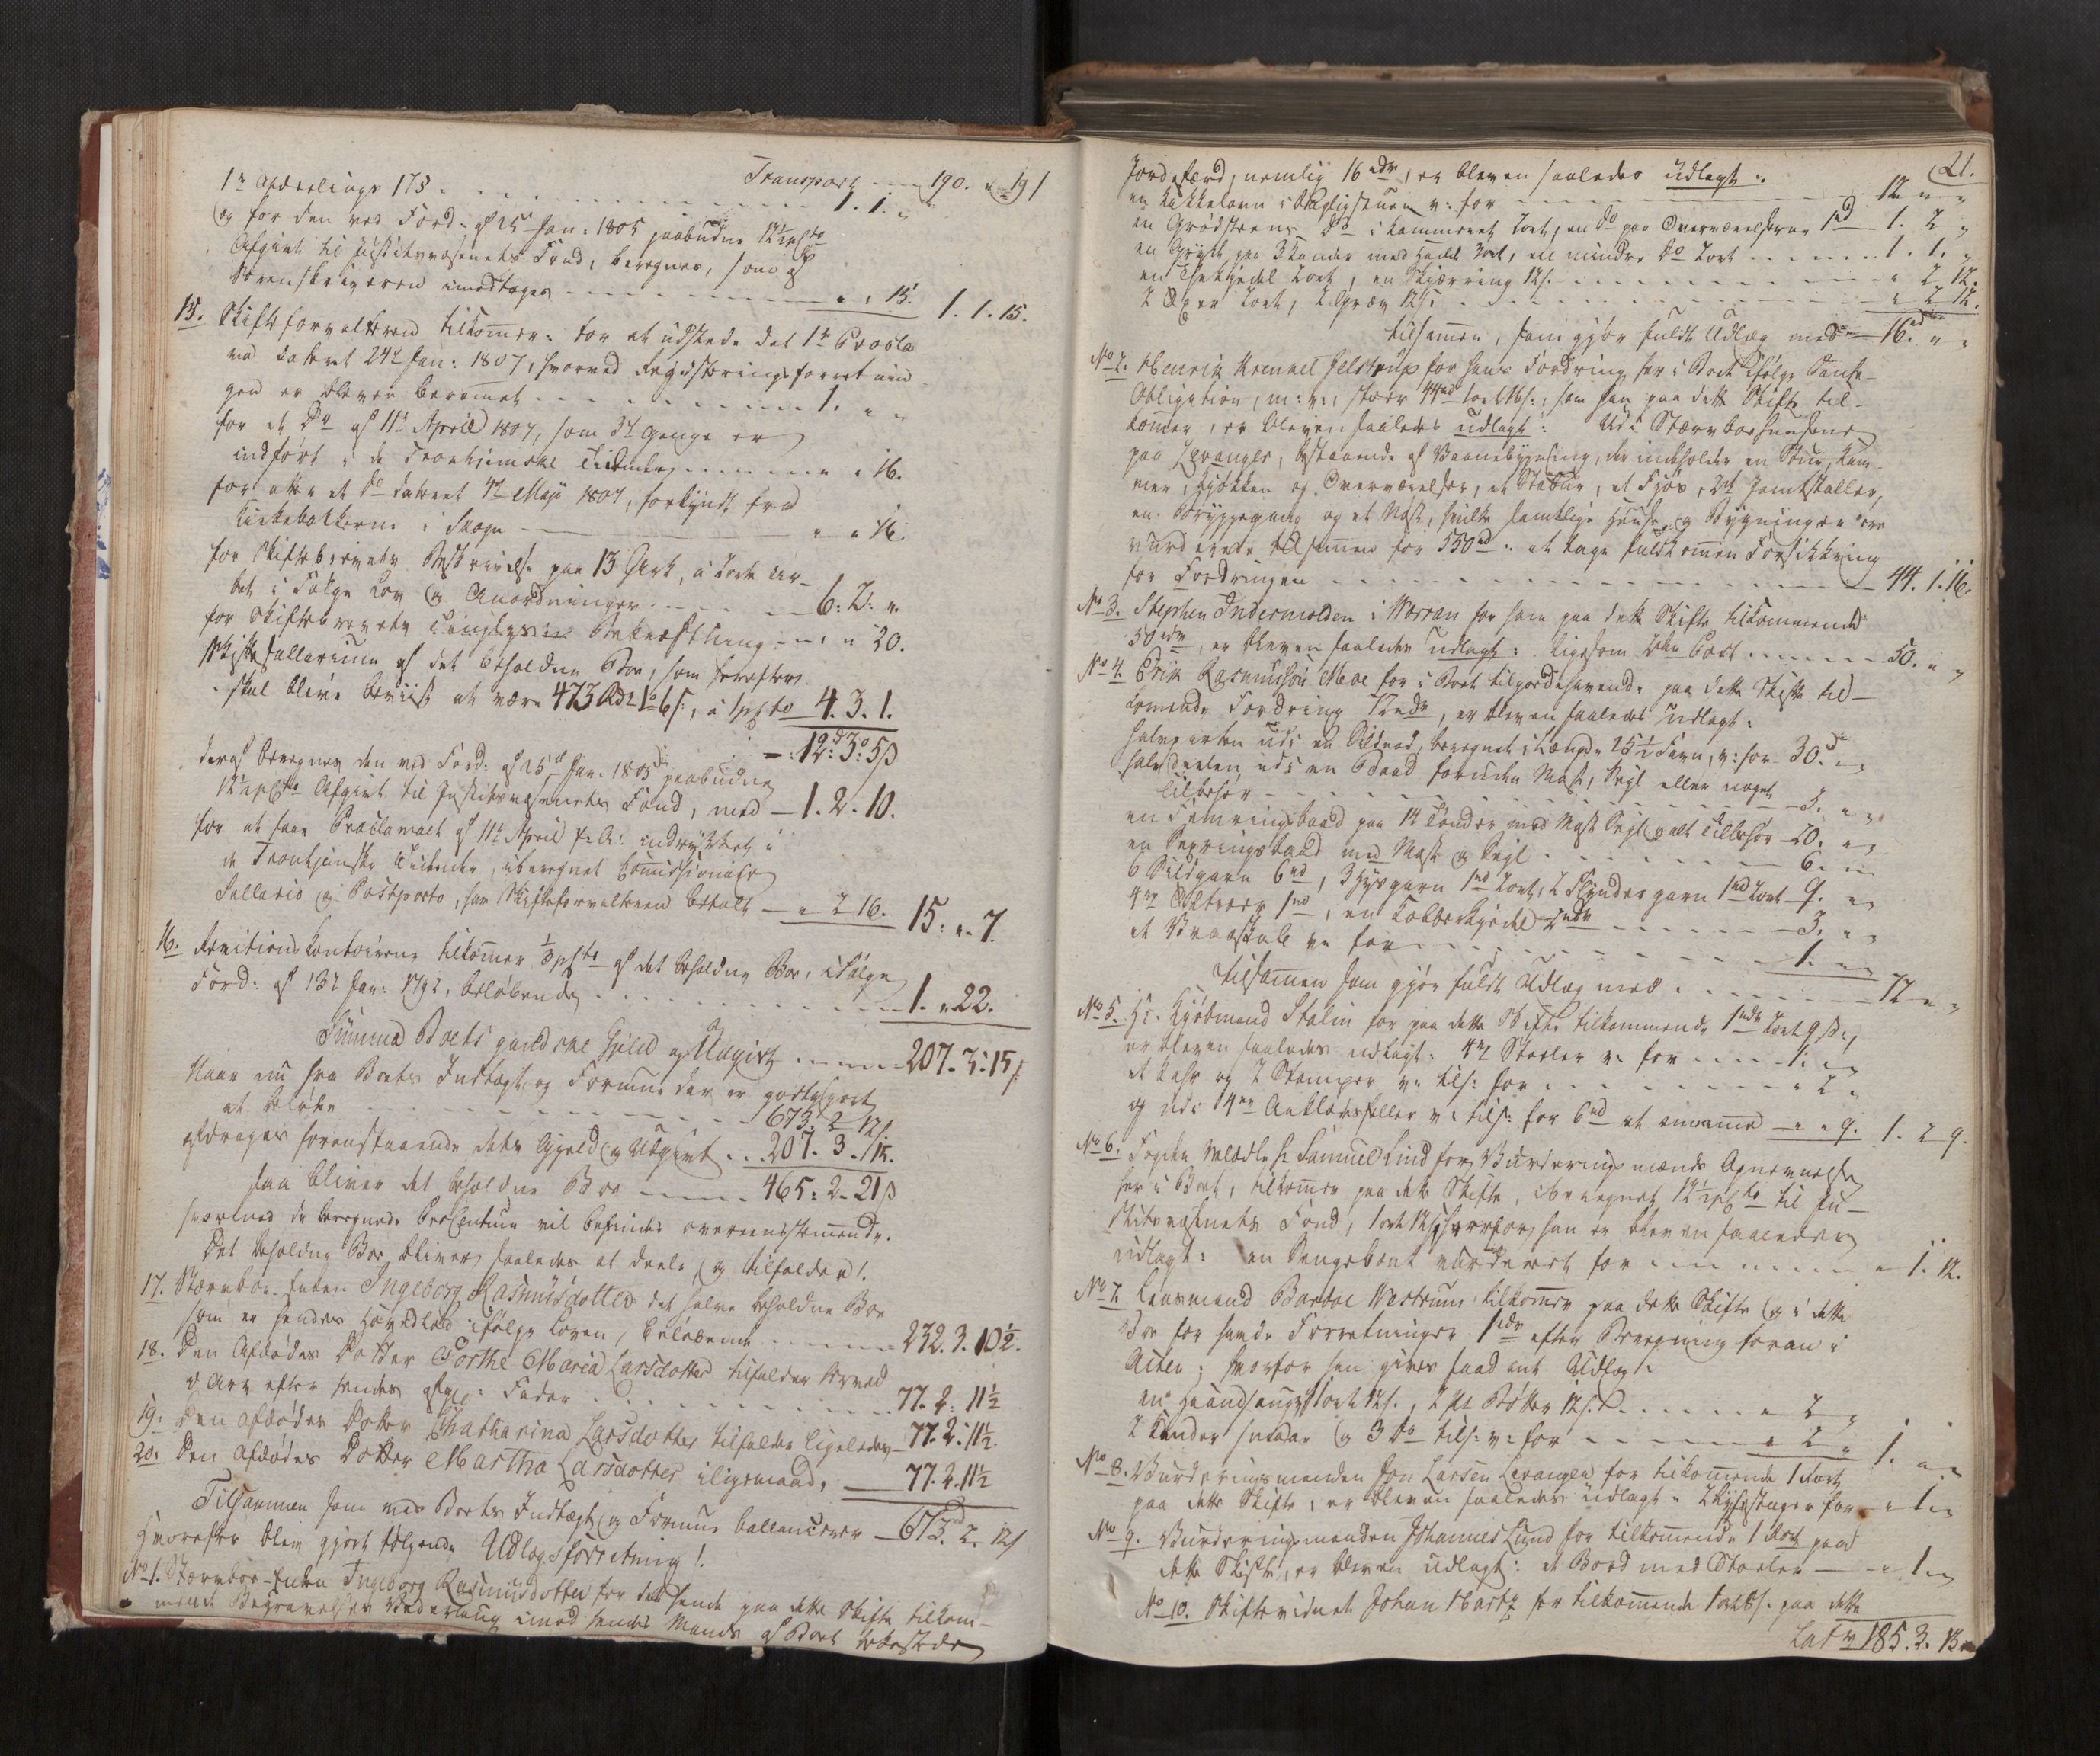 Transport - - - 190. " 19 s
1r Afdeelings 173 - - - 1. 1. "
og for den ved Ford: af 25 Jan: 1805 paabudne 12½ pCto
Afgivt til Justitsvæsenets Fond, beregnes, som af
Sorenskriveren imodtages - - - " " 15. 1. 1. 15.
15. Skifteforvalteren tilkommer: for at udstede det 1te Procla
ma dateret 24de Jan: 1807, hvorved Registreringsforretnin
gen er bleven berammet - - - 1. " "
for et Do af 11te April 1807, som 3de Gange er
indført i de Tronhiemske Tidender - - - " " 16.
for atter et Do dateret 4de Maji 1807, forkyndt fra
Kirkebakkerne i Skogn - - - " " 16.
for Skiftebrevets Beskrivelse paa 13 Ark, à 2ort Ar-
ket i Følge Lov og Anordninger - - - 6: 2: "
for Skiftebrevets Bekræftning - - - " " 20.
Skiftesallarium af det beholdne Boe, som herefter
skal blive beviist at være 473 Rdr 1o 6s:, à 1 pCto 4. 3. 1.
12:d 3o: 5s
deraf beregnes den ved Ford: af 25de Jan: 1805 paabudne
12½ pCto Afgivt til Justitsvæsenets Fond, med — 1. 2. 10.
for at faae Proclamaet af 11te April f: A: indrykket i
de Tronhjemske Tidender, iberegnet Commissionairs
Sallario og Postporto, har Skifteforvalteren betalt — " 2 16. 15: " 7.
16. Revisionskontoirene tilkommer ⅓ pCto af det beholdne Boe, ifølge
Ford: af 13de Jan: 1792, beløbende - - - 1. " 22.
Summa Boets gandske Gjeld og Udgivt - - - 207. 3: 15s
Naar nu fra Boets Indtægt og Formue der er godtgjort
at beløbe - - - 673. 2 12s.
afdrages foranstaaende dets Gjeld og Udgivt - 207. 3. 15.
saa bliver det beholdne Boe - - - 465: 2. 21s
hvormed de beregnede ProCentum vil befindes overeensstemmende.
Det beholdne Boe bliver saaledes at deele og tilfalder!.
17. Stervboe-Enken Ingeborg Rasmusdotter det halve beholdne Boe
som er hendes Hovedlod ifølge Loven, beløbende - - - 232. 3. 10½.
18. Den Afdødes Dotter Dorthe Maria Larsdotter tilfalder Arved
i Arv efter hendes afg: Fader - - - 77. 2: 11½
19. Den afdødes Dotter Chatharina Larsdotter tilfalder ligeledes — 77. 2: 11½.
20. Den afdødes Dotter Martha Larsdotter iligemaade, — 77. 2. 11½
Tilsammen som med Boets Indtægt og Formue ballancerer — 673d. 2. 12s
Hvorefter blev gjort følgende Udlægsforretning!.
No 1. Stervboe-Enken Ingeborg Rasmusdotter for det hende paa dette Skifte tilkom-
mende Begravelses Vederlaug imod hendes Mands af Boet bekostede
21.
Jordefærd, nemlig 16 rdr, er bleven saaledes udlagt:
en Kakkelovn i Dagligstuen v: for - - - 12 " "
en Grødsteens Do i Kammeret 2ort, en Do paa Overværelserne 1rd - 1. 2 "
en Gryde paa 3 Kander med Hadde 3ort, en mindre Do 2ort - - - 1. 1. "
en Theekjedel 2ort, en Skjærring 12s. - - - " 2 12.
2 Øxer 2ort, 2 Græv 12s: - - - " 2 12.
tilsamen, som gjør fuldt Udlæg med — 16.rd " "
No 2. Henrik Hemmet Jelstrup for hans Fordring her i Boet ifølge Pante-
Obligation, m: v:, stoer 44rd 1ort 16s:, som han paa dette Skifte til-
kommer, er bleven saaledes udlagt: Udi Stervboehusene
paa Levanger, bestaaende af Vaanebygning, der indeholder en Stue, Kam-
mer, Kjøkken og Overværelser, et Stabur, et Fjøs, 2de Jemtstaller,
en Bryggegang og et Nøst, hvilke samtlige Huuse og Bygninger ere
vurderede tilsammen for 550rd: at tage fuldkommen Forsikkring
for Fordringen - - - 44. 1. 16.
No 3. Stephen Indermolden i Worran for ham paa dette Skifte tilkommende
50 rdr, er bleven saaledes udlagt: ligesom 2den Post - - - 50. " "
No 4. Erik Rasmussøn Moe for i Boet tilgodehavende paa dette Skifte til-
kommende Fordring 72rdr, er bleven saaledes udlagt:
halvparten udi en Sildnod, beregnet i Længde 25½ Favn, v: for 30.rd "
halvdeelen udi en Baad foruden Mast, Sejl eller noget
tilbehør - - - 3. " "
en Femringsbaad paa 14 Tønder med Mast Sejl og alt Tilbehør — 20. " "
en Sexringsbaad med Mast og Sejl - - - 6. " "
6 Sildgarn 6rd, 3 Hysgarn 1rd 2ort, 2 Flyndergarn 1rd 2ort — 9. " "
4re Øltræer 1rd, en Kobberkjedel 2rdr - - - 3. " "
et Vraaskab v: for - - - 1. " "
Tilsamen som gjør fuldt Udlæg med - - - 72 " "
No 5. Hr. Kjøbmand Stalin for paa dette Skifte tilkommende 1rdr 2ort 9s:,
er bleven saaledes udlagt: 4re Stoeler v: for - - - 1: " "
et Kahr og 2 Stamper v: tils: for - - - " 2 "
og udi 14en v: tils: for 6rd at annamme — " " 9. 1. 2 9.
No 6. Fogden velædle Hr. Samuel Lind for Vurderingsmænds Opnævnelse
her i Boet, tilkommer paa dette Skifte, iberegnet 12½ pCto til Ju-
stitsvæsenets Fond, 1ort 12s, hvorfor han er bleven saaledes
udlagt: en Sengebonk vurderet for - - - " 1. 12.
No 7. Lensmand Bardoe Westrum tilkommer paa dette Skifte og i dette
Boe for havde Forretninger 1rdr efter Beregning foran i
Acten; hvorfor han gives saadant Udlæg!:
en Haandsaug 1ort 12s., 2 pk Bøtter 12s. - - - " 2 "
2 Tønder og 3 Do tils: v: for - - - " 2 " 1. " "
No 8. Vurderingsmanden Jon Larsen Levangen for tilkommende 1 ort
paa dette Skifte, er bleven saaledes udlagt: 2 Lysestager for " 1 "
No 9. Vurderingsmanden Johannes Lund for tilkommende 1 Ort paa
dette Skifte, er bleven udlagt: et Bord med Stoeler — " 1 "
No 10. Skiftevidnet Johan Hartz for tilkommende 1ort 8s. paa dette
Latr 185. 3. 13